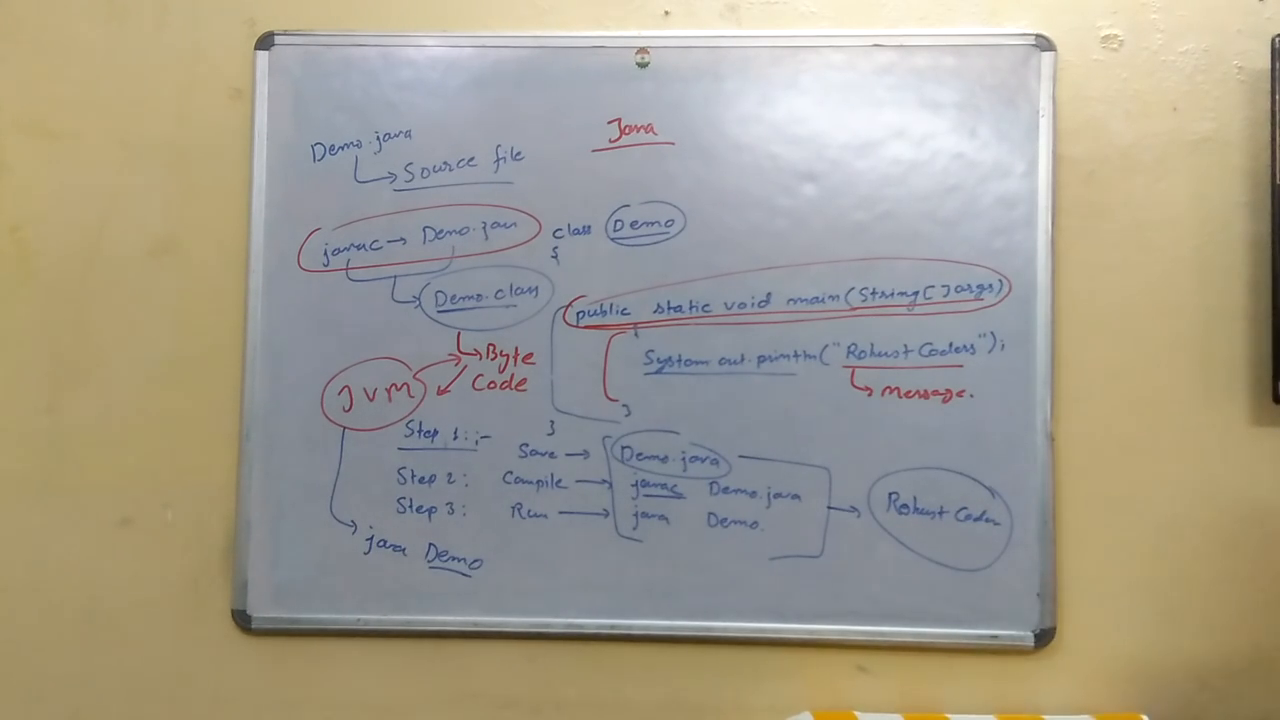 Java
Demo.java
Source file
javac → Demo.java
Demo.class
Byte
Code
JVM
class Demo
{
public static void main(String[]args)
{
System.out.println("Robust Coders");
message.
}
}
Step 1:- Save → Demo.java
Step 2: Compile → javac Demo.java
Step 3: Run → java Demo.
Robust Coders
java Demo